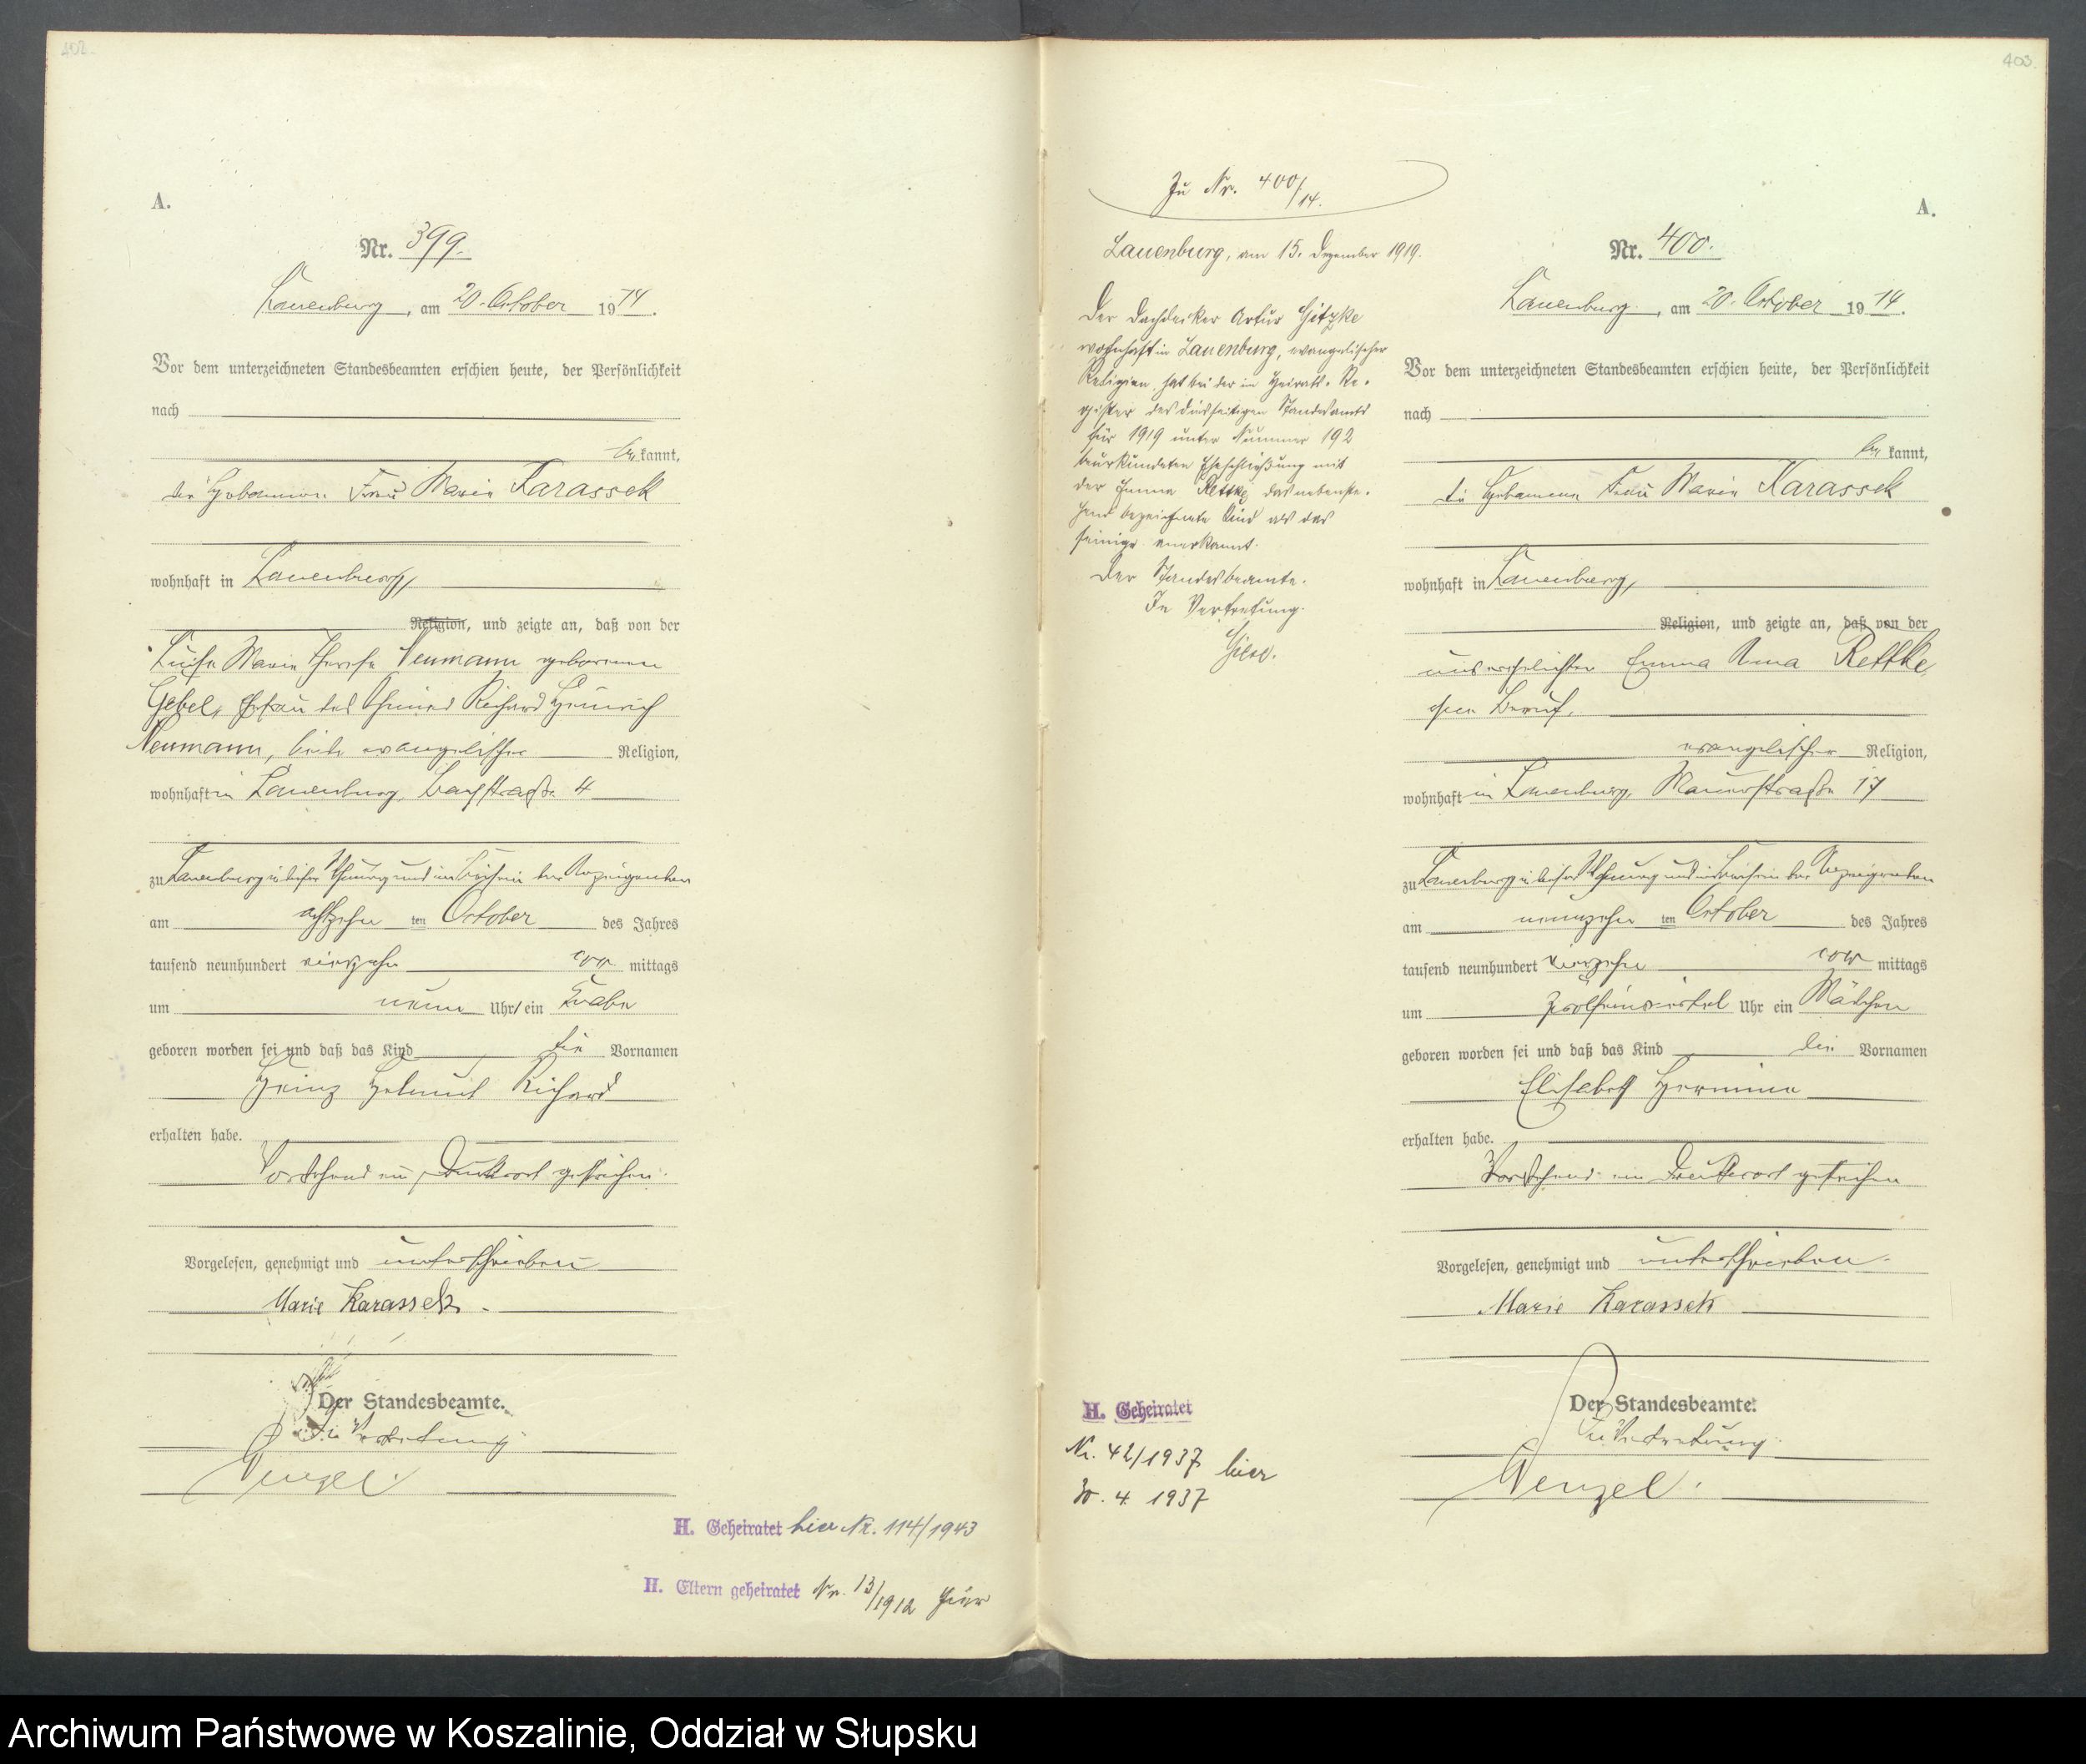 402.
A.
Nr. 399.
Lauenburg, am 20. October 1914.
Vor dem unterzeichneten Standesbeamten erschien heute, der Persönlichkeit
nach
bekannt,
die Hebamme Frau Marie Karasseck
wohnhaft in Lauenburg,
Religion, und zeigte an, daß von der
Luise Marie Therese Neumann geborenen
Gebel, Ehefrau des Richard Heinrich
Neumann, beide evangelischer Religion,
wohnhaft in Lauenburg, 4
zu Lauenburg in dieser Wohnung und im Beisein der Anzeigenden
am achtzehnten October des Jahres
tausend neunhundert vierzehn vormittags
um neun Uhr ein Knabe
geboren worden sei und daß das Kind die Vornamen
Heinz Helmut Richard
erhalten habe.
Vorstehend ein Druckwort gestrichen.
Vorgelesen, genehmigt und unterschrieben
Marie Karasseck.
Der Standesbeamte.
In Vertretung
Wenzel.
H. Geheiratet hier Nr. 114/1943
H. Eltern geheiratet Nr. 13/1912 hier
403.
Zu Nr. 400/14.
Lauenburg, am 15. Dezember 1919.
Der Dachdecker Artur Gitzke
wohnhaft in Lauenburg, evangelischer
Religion, hat bei der im Heirats-Re-
gister des diesseitigen Standesamts
für 1919 unter Nummer 192
beurkundeten Eheschließung mit
der Emma Rettke das nebenste-
hend bezeichnete Kind als das
seinige anerkannt.
Der Standesbeamte.
In Vertretung.
H. Geheiratet
Nr. 42/1937 hier
30. 4. 1937
A.
Nr. 400.
Lauenburg, am 20. October 1914.
Vor dem unterzeichneten Standesbeamten erschien heute, der Persönlichkeit
nach
bekannt,
die Hebamme Frau Marie Karasseck
wohnhaft in Lauenburg,
Religion, und zeigte an, daß von der
unverehelichten Emma Anna Rettke,
ohne Beruf,
evangelischer Religion,
wohnhaft in Lauenburg, Mauerstraße 17
zu Lauenburg in dieser Wohnung und im Beisein der Anzeigenden
am neunzehnten October des Jahres
tausend neunhundert vierzehn vormittags
um zwölfeinviertel Uhr ein Mädchen
geboren worden sei und daß das Kind die Vornamen
Elisabeth Hermine
erhalten habe.
Vorstehend ein Druckwort gestrichen
Vorgelesen, genehmigt und unterschrieben.
Marie Karasseck
Der Standesbeamte.
In Vertretung
Wenzel.
Archiwum Państwowe w Koszalinie, Oddział w Słupsku